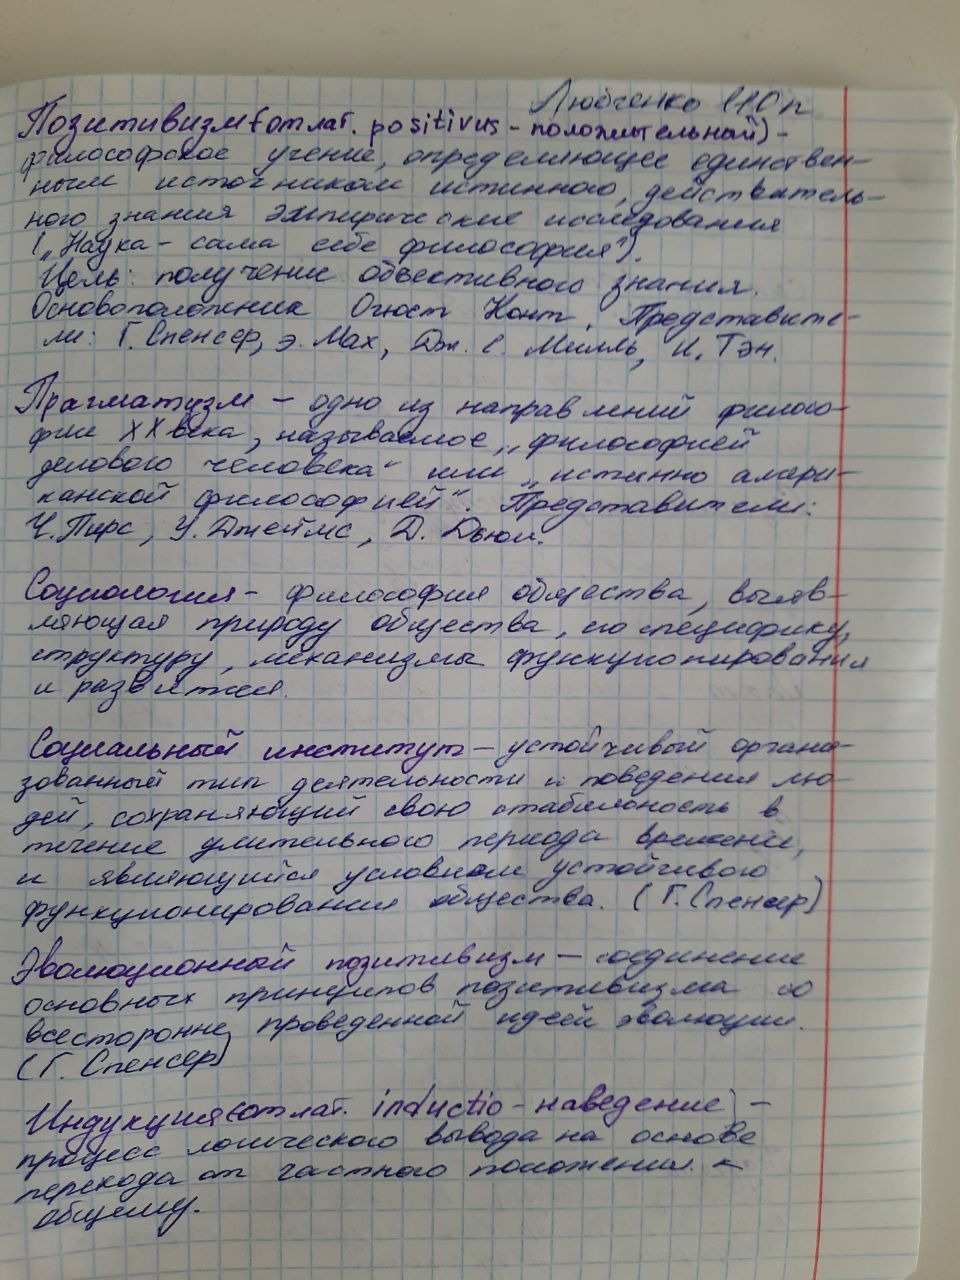 Любченко 110 п
Позитивизм (от лат. positivus - положительный) -
философское учение, определяющее единствен-
ным источником истинного, действитель-
ного знания эмпирические исследования
(„Наука - сама себе философия").
Цель: получение объективного знания.
Основоположник Огюст Конт. Представите-
ли: Г. Спенсер, Э. Мах, Дж. С. Милль, И. Тэн.
Прагматизм - одно из направлений филосо-
фии XX века, называемое „философией
делового человека" или „истинно амери-
канской философией". Представители:
Ч. Пирс, У. Джеймс, Д. Дьюи.
Социология - философия общества, выяв-
ляющая природу общества, его специфику,
структуру, механизмы функционирования
и развития.
Социальный институт - устойчивый органи-
зованный тип деятельности и поведения лю-
дей, сохраняющий свою стабильность в
течение длительного периода времени,
и являющийся условием устойчивого
функционирования общества. (Г. Спенсер)
Эволюционный позитивизм - соединение
основных принципов позитивизма со
всесторонне проведенной идеей эволюции.
(Г. Спенсер)
Индукция (от лат. inductio - наведение) -
процесс логического вывода на основе
перехода от частного положения к
общему.